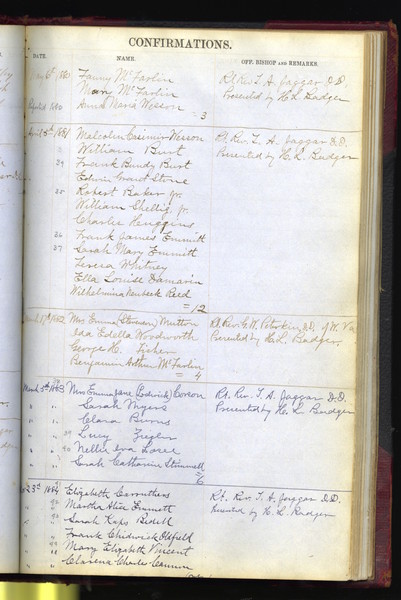 CONFIRMATIONS.
DATE. NAME. OFF. BISHOP AND REMARKS.
Fanny McFarlin Rt. Rev. T. A. Jaggar D.D.
Mary McFarlin Presented by H. L. Badger
1880 Anna Maria Wesson
= 3
April 3rd 1881 Malcolm Casimir Wesson Rt. Rev. T. A. Jaggar D.D.
William Burt Presented by H. L. Badger
34 Frank Bundy Burt
Edwin Grant Stone
35 Robert Baker Jr.
William Shellig Jr.
Charles Huggins
36 Frank James Emmitt
37 Sarah Mary Emmett
Teresa Whitney
Ella Louise Damarin
Wilhelmina Reed
= 12
1882 Mrs Emma (Stewart) Mutton Rt. Rev. G. W. Peterkin D.D. of W. Va
Ida Edella Woodworth Presented by H. L. Badger.
George H. Fisher
Benjamin Arthur McFarlin
= 4
March 1883 Mrs Emma Jane Corson Rt. Rev. T. A. Jaggar D.D.
" " Sarah Myers Presented by H. L. Badger
" " Clara Burns
" " 39 Lucy Zeigler
" " 40 Nellie Iva
" " Sarah Catharine Stimmell
= 6
23rd 1884 Elizabeth Carruthers Rt. Rev. T. A. Jaggar D.D.
" " Martha Alice Emmett Presented by H. L. Badger
" " Sarah Kaps Bidell
" " Frank Chidwick Oldfield
" " Mary Elizabeth Vincent
" " Clarena Charles Cannon